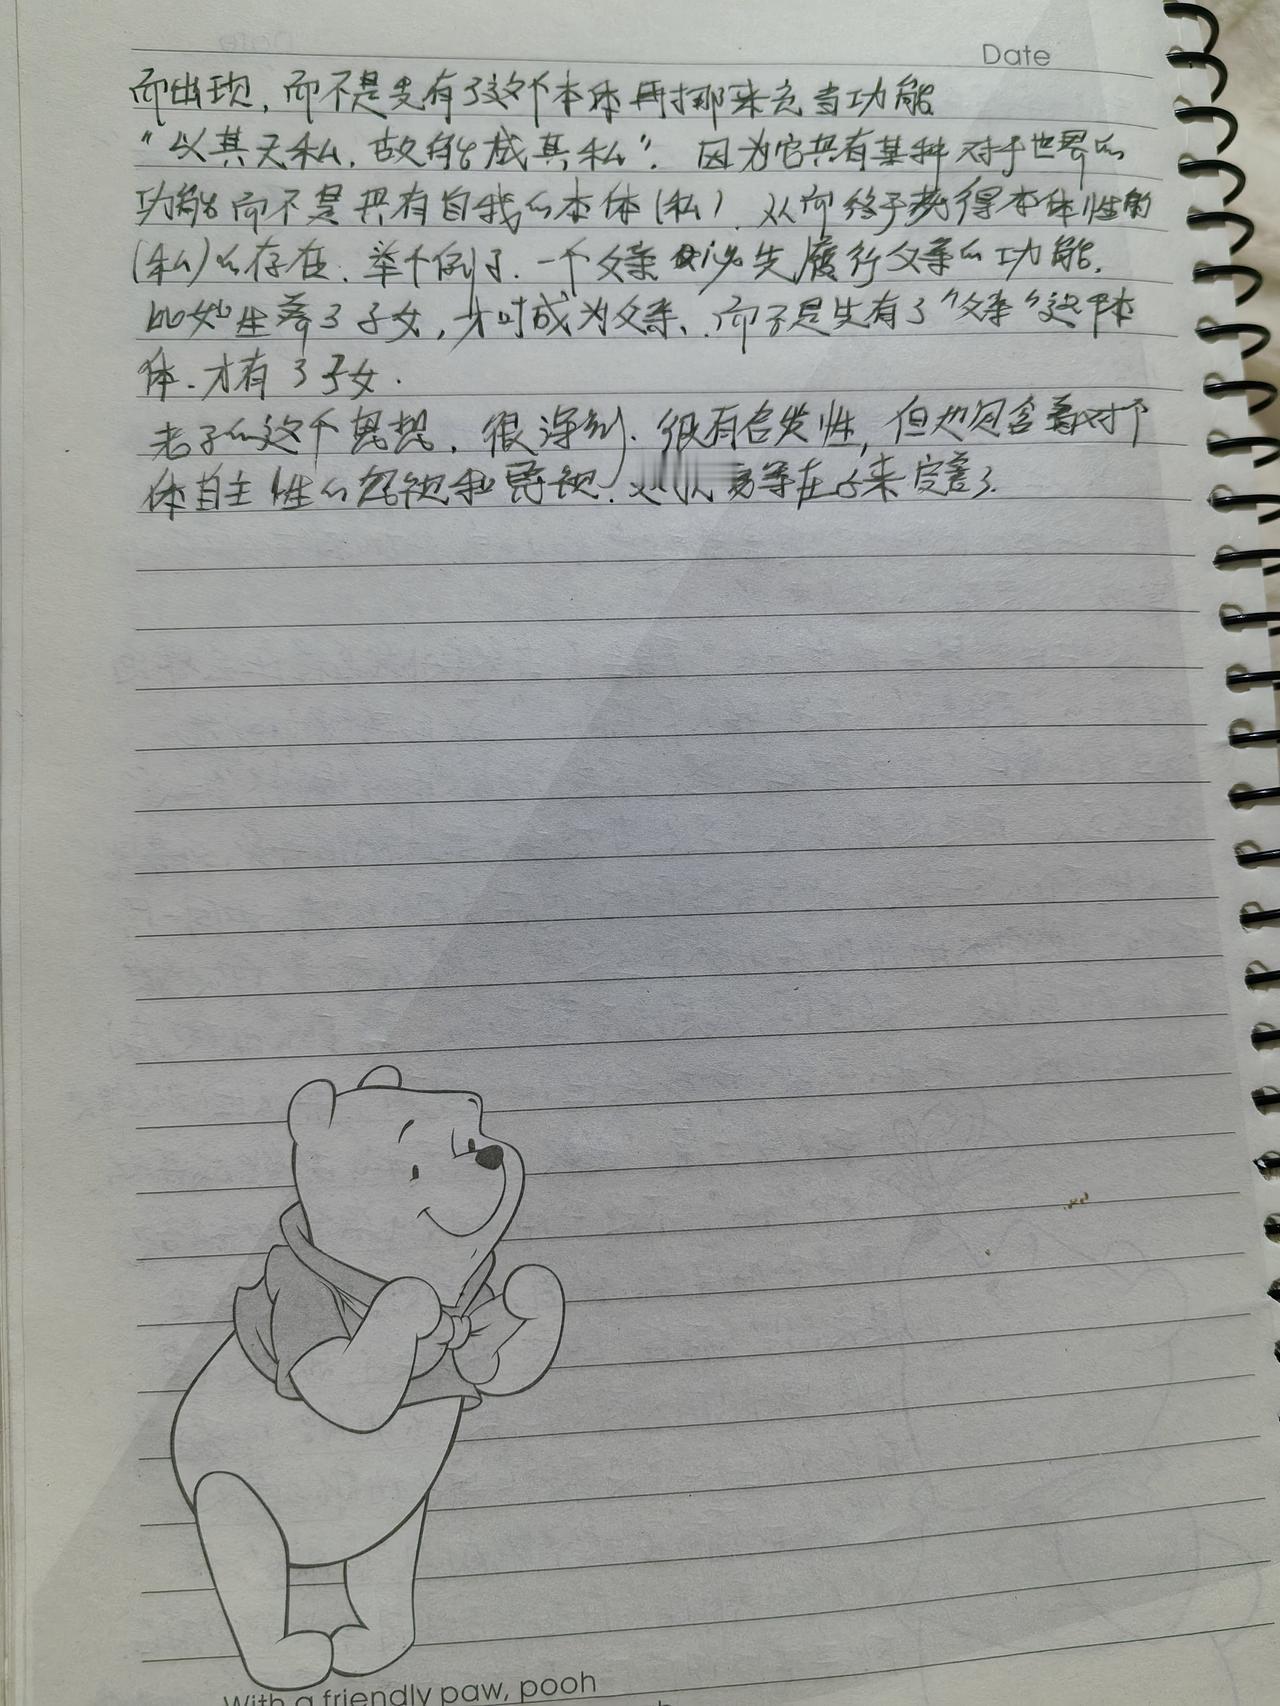 Date
而出现，而不是先有了这个本体再挪来充当功能
“以其无私，故能成其私”。因为它具有某种对于世界的
功能而不是具有自我的本体（私），从而终于获得本体性的
（私）的存在。举个例子，一个父亲必先履行父亲的功能，
比如生养了子女，才叫成为父亲，而不是先有了“父亲”这个本
体，才有了子女.
老子的这个思想，很深刻，很有启发性，但也包含着对个
体自主性的
等在后来完善了.
With a friendly paw, pooh